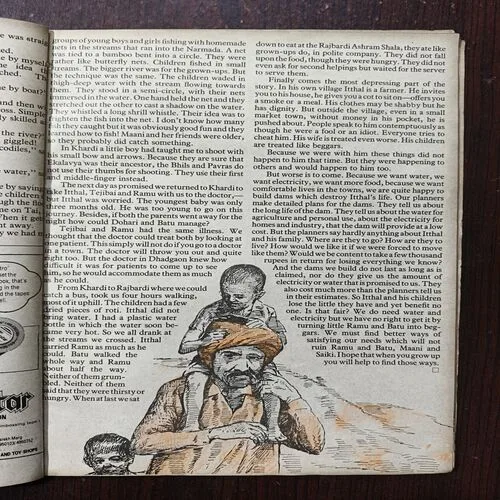 e was strai
d.
e by myse
he idea
ched. Th
e by boat?
nd then w
oss. Simpl
ly skilled
the river?"
giggled!
codiles,"
water,"
by saying
e children
ugh the flo
e on Tal,
When it get
it we had n
groups of young boys and girls fishing with homemade
nets in the streams that ran into the Narmada. A net
was tied to a bamboo bent into a circle. They were
rather like butterfly nets. Children fished in small
streams. The bigger river was for the grown-ups. But
the technique was the same. The children waded in
thigh-deep water with the stream flowing towards
them. They stood in a semi-circle, with their nets
immersed in the water. One hand held the net and they
stretched out the other to cast a shadow on the water.
They whistled a long shrill whistle. Their idea was to
frighten the fish into the net. I don't know how many
fish they caught but it was obviously good fun and they
learned how to fish! Maani and her friends were older,
so they probably did catch something.
In Khardi a little boy had taught me to shoot with
his small bow and arrows. Because they are sure that
Ekalavya was their ancestor, the Bhils and Pavras do
not use their thumbs for shooting. They use their first
and middle-finger instead.
The next day as promised we returned to Khardi to
take Itthal, Tejibai and Ramu with us to the doctor,—
but Itthal was worried. The youngest baby was only
three months old. He was too young to go on this
journey. Besides, if both the parents went away for the
night how could Dohari and Batu manage?
Tejibai and Ramu had the same illness. We
thought that the doctor could treat both by looking at
one patient. This simply will not do if you go to a doctor
in a town. The doctor will throw you out and quite
right too. But the doctor in Dhadgaon knew how
difficult it was for patients to come up to see
him, so he would accommodate them as much
as he could.
From Khardi to Rajbardi where we could
catch a bus, took us four hours walking,
most of it uphill. The children had a few
dried pieces of roti. Itthal did not
bring water. I had a plastic water
bottle in which the water soon be-
came very hot. So we all drank at
the streams we crossed. Itthal
carried Ramu as much as he
could. Batu walked the
whole way and Ramu
about half the way.
Neither of them grum-
bled. Neither of them
said that they were thirsty or
hungry. When at last we sat
down to eat at the Rajbardi Ashram Shala, they ate like
grown-ups do, in polite company. They did not fall
upon the food, though they were hungry. They did not
even ask for second helpings but waited for the server
to serve them.
Finally comes the most depressing part of the
story. In his own village Itthal is a farmer. He invites
you to his house, he gives you a cot to sit on—offers you
a smoke or a meal. His clothes may be shabby but he
has dignity. But outside the village, even in a small
market town, without money in his pocket, he is
pushed about. People speak to him contemptuously as
though he were a fool or an idiot. Everyone tries to
cheat him. His wife is treated even worse. His children
are treated like beggars.
Because we were with him these things did not
happen to him that time. But they were happening to
others and would happen to him too.
But worse is to come. Because we want water, we
want electricity, we want more food, because we want
comfortable lives in the towns, we are quite happy to
build dams which destroy Itthal's life. Our planners
make detailed plans for the dams. They tell us about
the long life of the dam. They tell us about the water for
agriculture and personal use, about the electricity for
homes and industry, that the dam will provide at a low
cost. But the planners say hardly anything about Itthal
and his family. Where are they to go? How are they to
live? How would we like it if we were forced to move
like them? Would we be content to take a few thousand
rupees in return for losing everything we know?
And the dams we build do not last as long as is
claimed, nor do they give us the amount of
electricity or water that is promised to us. They
also cost much more than the planners tell us
in their estimates. So Itthal and his children
lose the little they have and yet benefit no
one. Is that fair? We do need water and
electricity but we have no right to get it by
turning little Ramu and Batu into beg-
gars. We must find better ways of
satisfying our needs which will not
ruin Ramu and Batu, Maani and
Saiki. I hope that when you grow up
you will help to find those ways.
AND TOY SHOPS